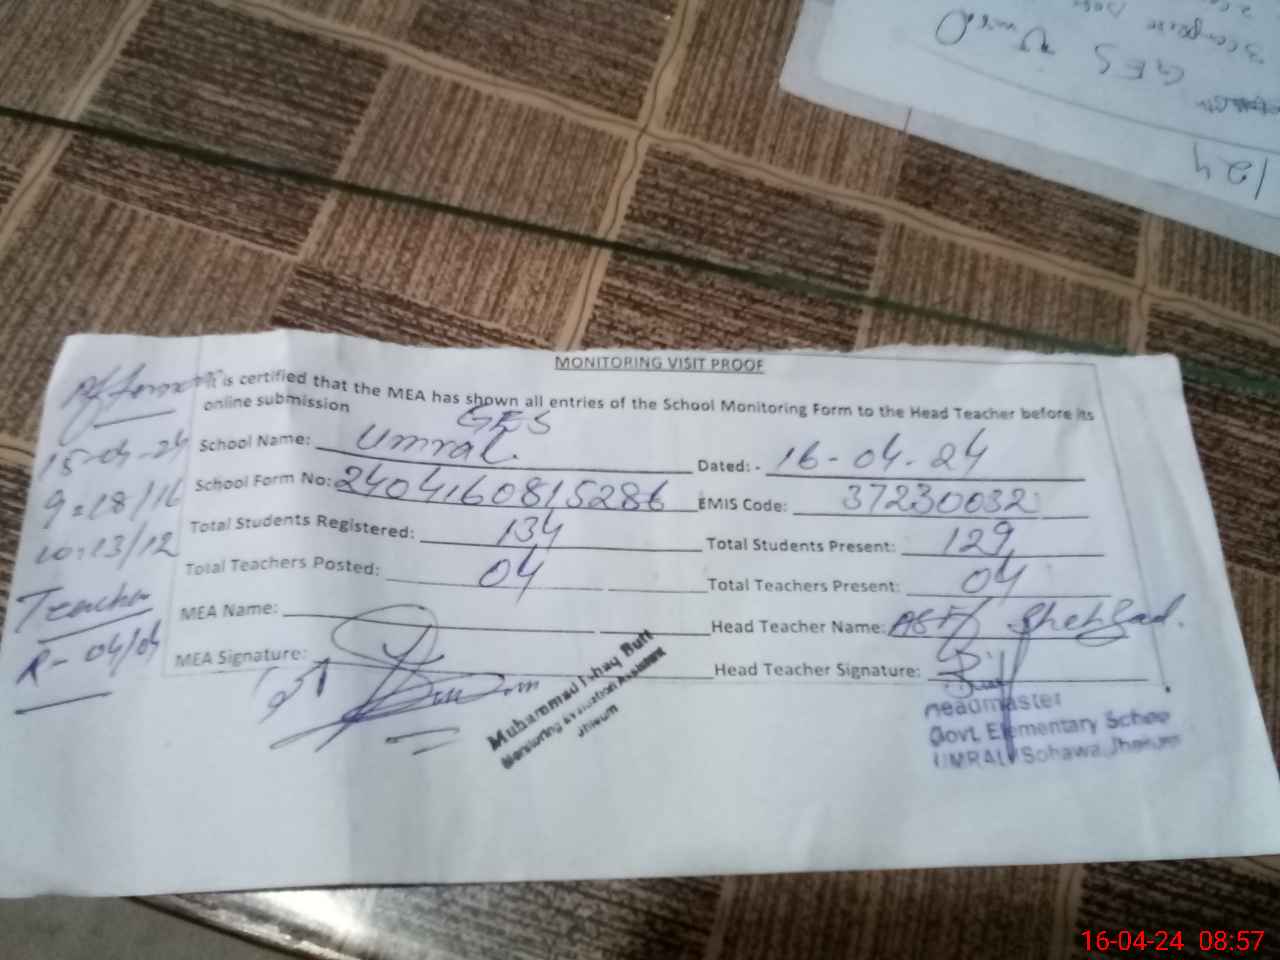 124
GES Umral
MONITORING VISIT PROOF
It is certified that the MEA has shown all entries of the School Monitoring Form to the Head Teacher before its
online submission
GES
School Name: Umral. Dated:- 16-04-24
School Form No: 2404160815286 EMIS Code: 37230032
Total Students Registered: 134 Total Students Present: 129
Total Teachers Posted: 04 Total Teachers Present: 04
MEA Name: Head Teacher Name: Shehzad.
MEA Signature: Head Teacher Signature:
15-04-24
9=18/16
10=13/12
Teacher
R- 04/04
Muhammad Ishaq Butt
Monitoring Evaluation Assistant
Jhelum
Headmaster
Govt. Elementary School
UMRAL Sohawa, Jhelum
16-04-24 08:57